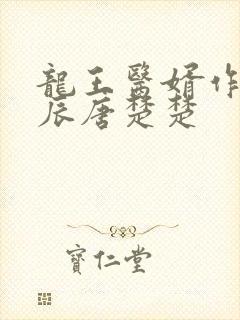 龍王醫婿作
辰唐楚楚
寶仁堂